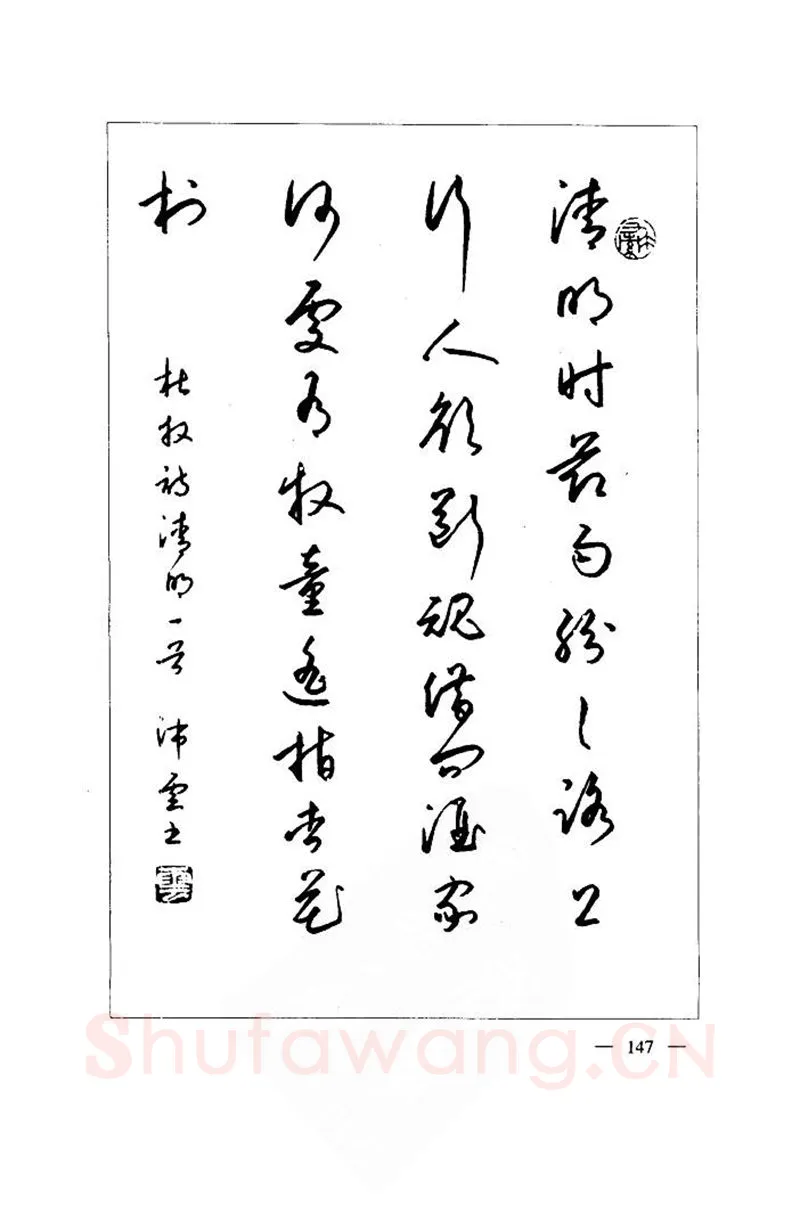 清明时节雨纷〻路上
行人欲断魂借问酒家
何处有牧童遥指杏花
村
杜牧诗清明一首 沛云书
— 147 —
Shufawang.CN